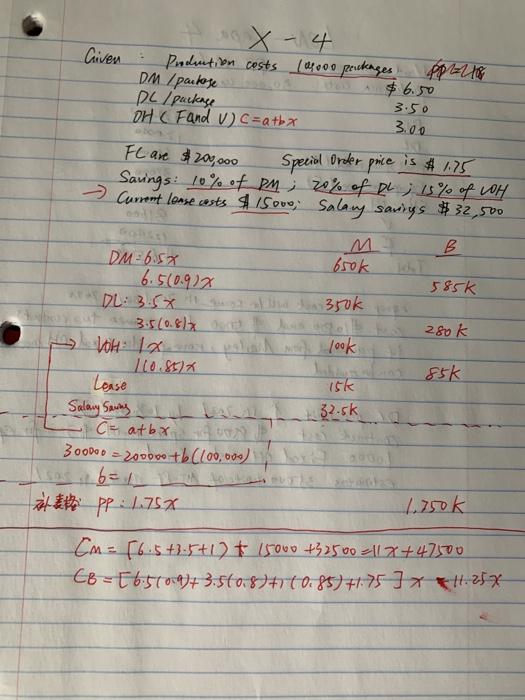 X - 4
Given : Production costs 100,000 packages
DM /package $ 6.50
DL /package 3.50
OH ( F and V) C=a+bx 3.00
FC are $ 200,000 Special Order price is $ 1.75
Savings: 10% of DM ; 20% of DL ; 15% of VOH
→ Current lease costs $ 15000; Salary savings $ 32,500
M B
DM: 6.5x 650k
6.5(0.9)x 585k
DL: 3.5x 350k
3.5(0.8)x 280k
VOH: 1x 100k
1(0.85)x 85k
Lease 15k
Salary Saving 32.5k
C= a+bx
300000 = 200000 + b(100,000)
b= 1
PP : 1.75x 1,750k
CM = [6.5+3.5+1] + 15000 +32500 =11x+47500
CB = [6.5(0.9)+ 3.5(0.8)+1(0.85)+1.75 ] x 11.25x